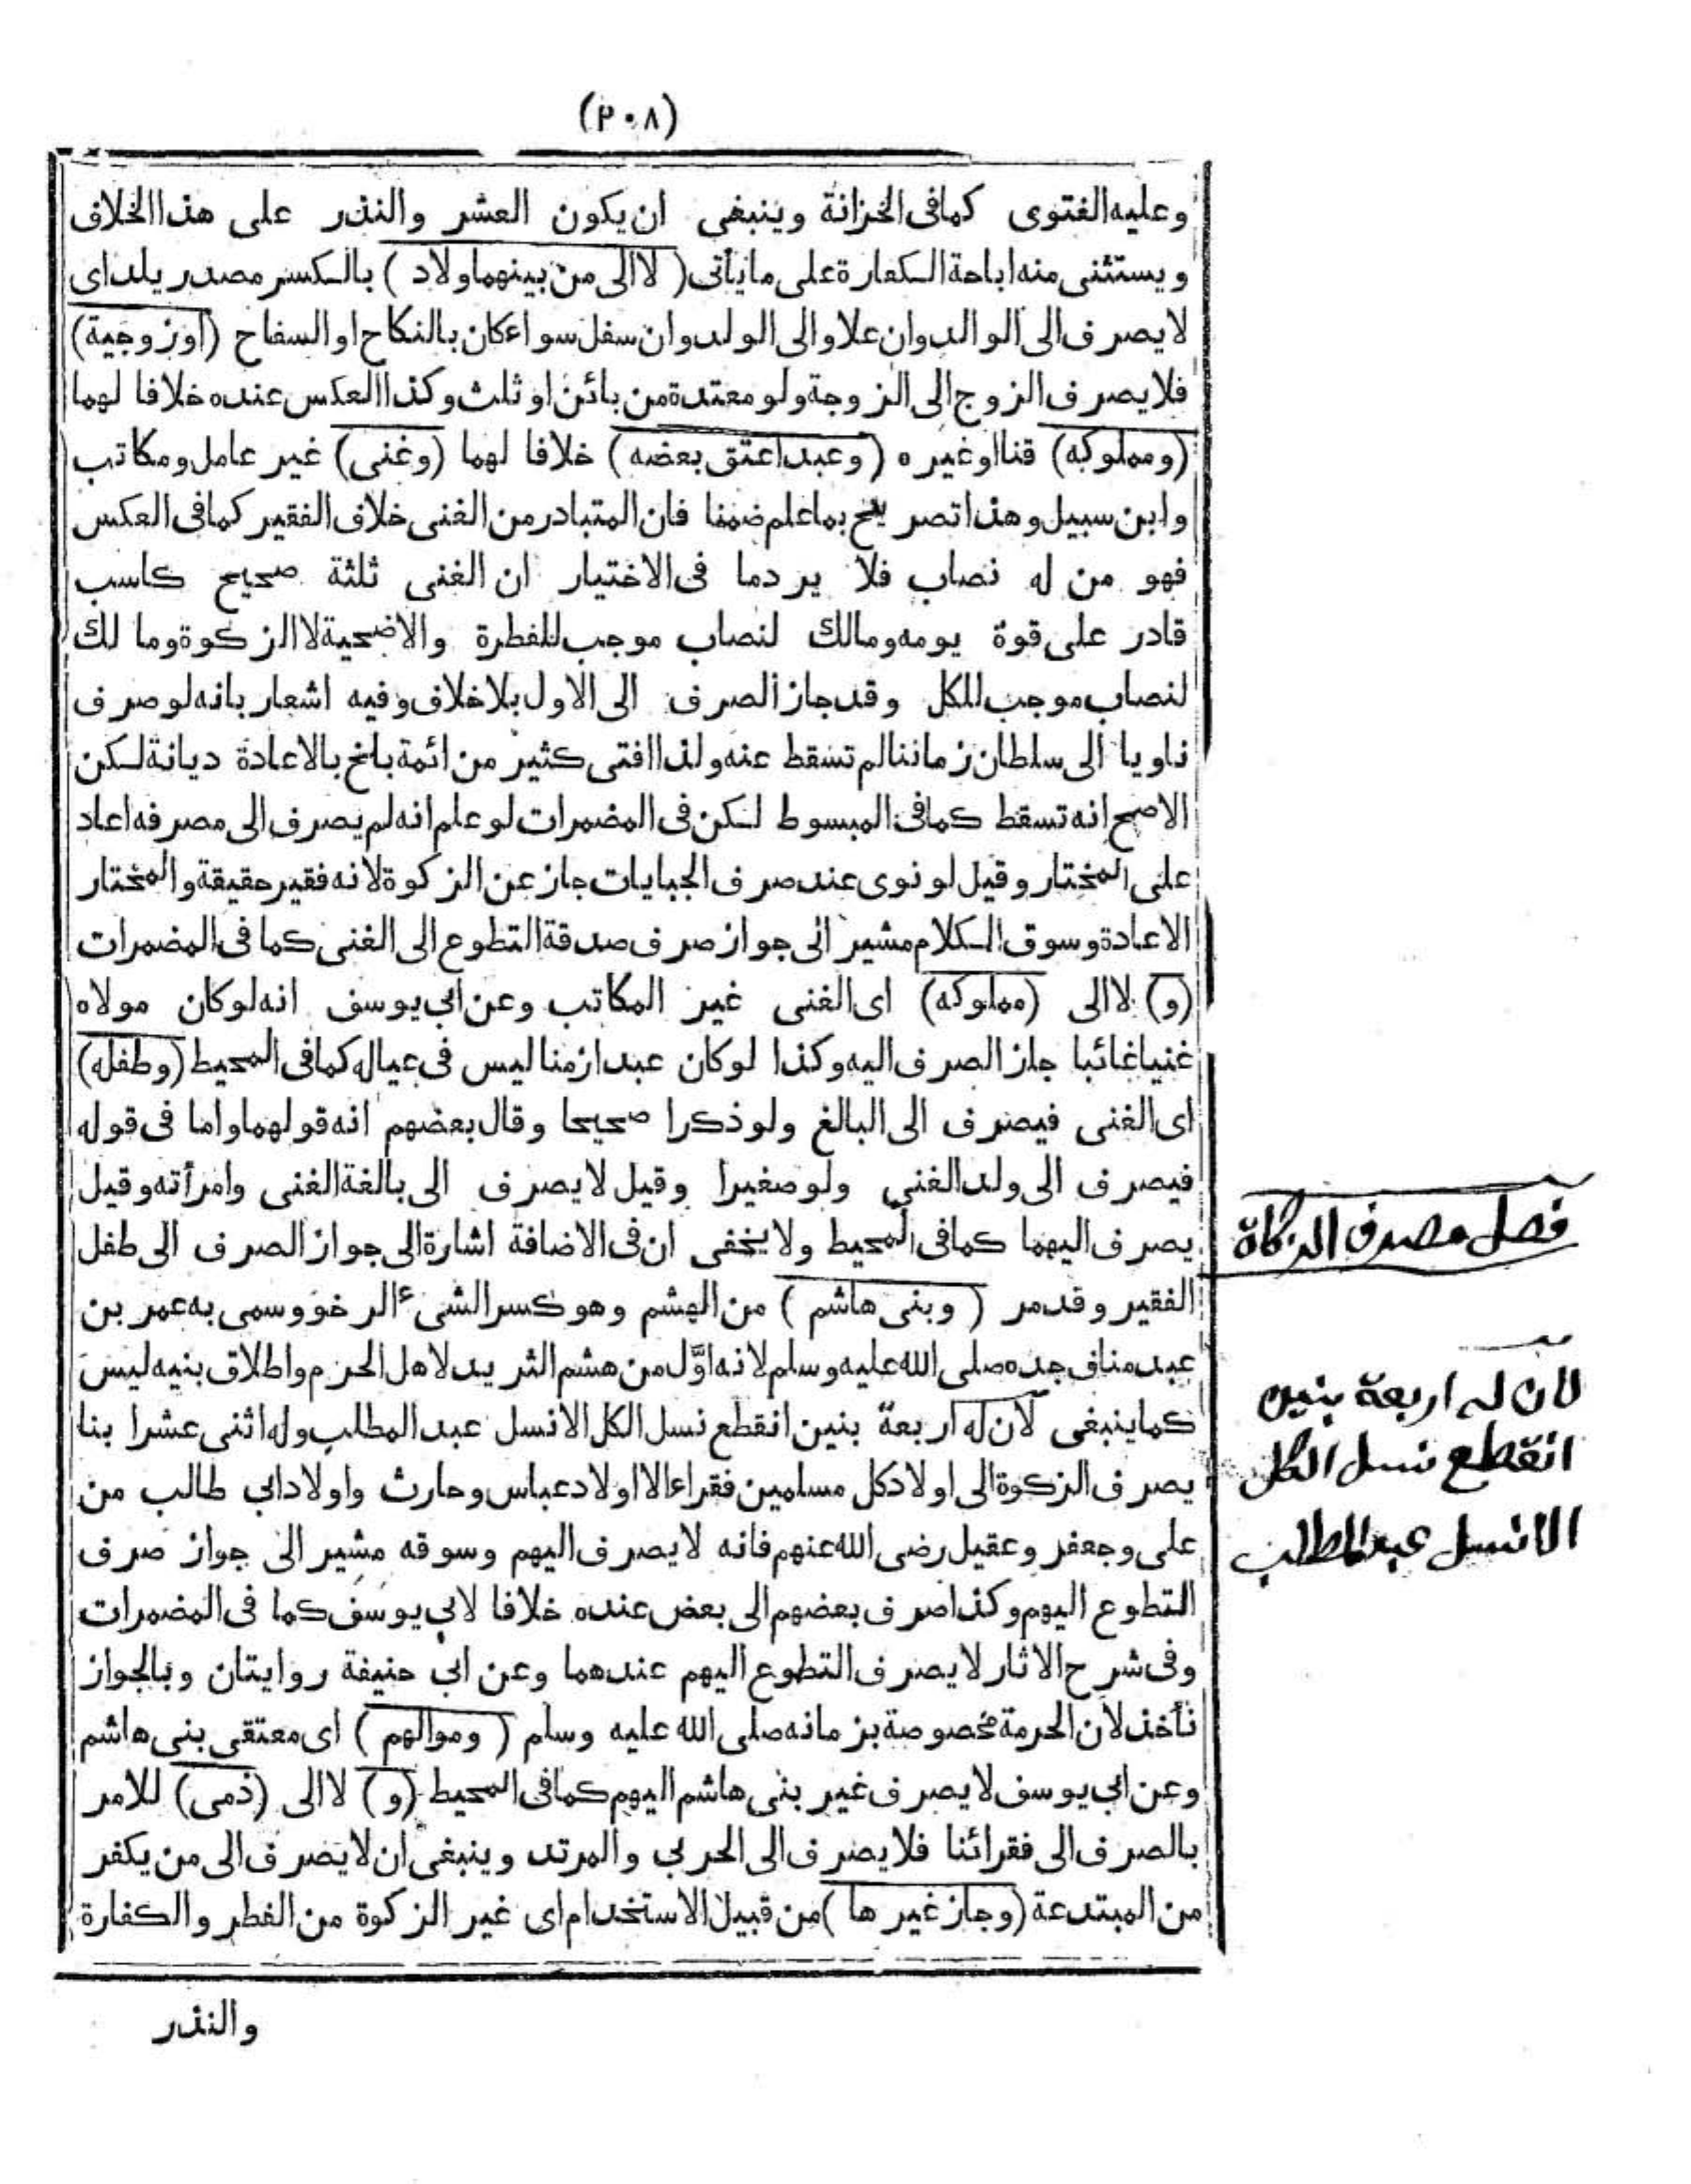 (٢٠٨)
وعليه الفتوى كما فى الخزانة وينبغى ان يكون العشر والنذر على هذا الخلاف
ويستثنى منه اباحة الكفارة على ما يأتى (لا الى من بينهما ولاد) بالكسر مصدر يلد اى
لا يصرف الى الوالد وان علا والى الولد وان سفل سواء كان بالنكاح او السفاح (او زوجية)
فلا يصرف الزوج الى الزوجة ولو معتدة من بائن او ثلث وكذا العكس عنده خلافا لهما
(ومملوكه) قنا او غيره (وعبد اعتق بعضه) خلافا لهما (وغنى) غير عامل ومكاتب
وابن سبيل وهذا تصريح بما علم ضمنا فان المتبادر من الغنى خلاف الفقير كما فى العكس
فهو من له نصاب فلا يرد ما فى الاختيار ان الغنى ثلثة صحيح كاسب
قادر على قوة يومه ومالك لنصاب موجب للفطرة والاضحية لا الزكوة ومالك
لنصاب موجب للكل وقد جاز الصرف الى الاول بلا خلاف وفيه اشعار بانه لو صرف
ناويا الى سلطان زماننا لم تسقط عنه ولذا افتى كثير من ائمة بلخ بالاعادة ديانة لكن
الاصح انه تسقط كما فى المبسوط لكن فى المضمرات لو علم انه لم يصرف الى مصرفه اعاد
على المختار وقيل لو نوى عند صرف الجبايات جاز عن الزكوة لانه فقير حقيقة والمختار
الاعادة وسوق الكلام مشير الى جواز صرف صدقة التطوع الى الغنى كما فى المضمرات
(و) لا الى (مملوكه) اى الغنى غير المكاتب وعن ابى يوسف انه لو كان مولاه
غنيا غائبا جاز الصرف اليه وكذا لو كان عبدا زمنا ليس فى عياله كما فى المحيط (وطفله)
اى الغنى فيصرف الى البالغ ولو ذكرا صحيحا وقال بعضهم انه قولهما واما فى قوله
فيصرف الى ولد الغنى ولو صغيرا وقيل لا يصرف الى بالغة الغنى وامرأته وقيل
يصرف اليهما كما فى المحيط ولا يخفى ان فى الاضافة اشارة الى جواز الصرف الى طفل
الفقير وقد مر (وبنى هاشم) من الهشم وهو كسر الشىء الرخو وسمى به عمر بن
عبد مناف جده صلى الله عليه وسلم لانه اوّل من هشم الثريد لاهل الحرم واطلاق بنيه ليس
كما ينبغى لان له اربعة بنين انقطع نسل الكل الا نسل عبد المطلب وله اثنى عشر ابنا
يصرف الزكوة الى اولاد كل مسلمين فقراء الا اولاد عباس وحارث واولاد ابى طالب من
على وجعفر وعقيل رضى الله عنهم فانه لا يصرف اليهم وسوقه مشير الى جواز صرف
التطوع اليهم وكذا صرف بعضهم الى بعض عنده خلافا لابى يوسف كما فى المضمرات
وفى شرح الاثار لا يصرف التطوع اليهم عندهما وعن ابى حنيفة روايتان وبالجواز
نأخذ لان الحرمة مخصوصة بزمانه صلى الله عليه وسلم (وموالهم) اى معتقى بنى هاشم
وعن ابى يوسف لا يصرف غير بنى هاشم اليهم كما فى المحيط (و) لا الى (ذمى) للامر
بالصرف الى فقرائنا فلا يصرف الى الحربى والمرتد وينبغى ان لا يصرف الى من يكفر
من المبتدعة (وجاز غيرها) من قبيل الاستخدام اى غير الزكوة من الفطر والكفارة
والنذر
فصل مصرف الزكاة
لان له اربعة بنين
انقطع نسل الكل
الا نسل عبد المطلب